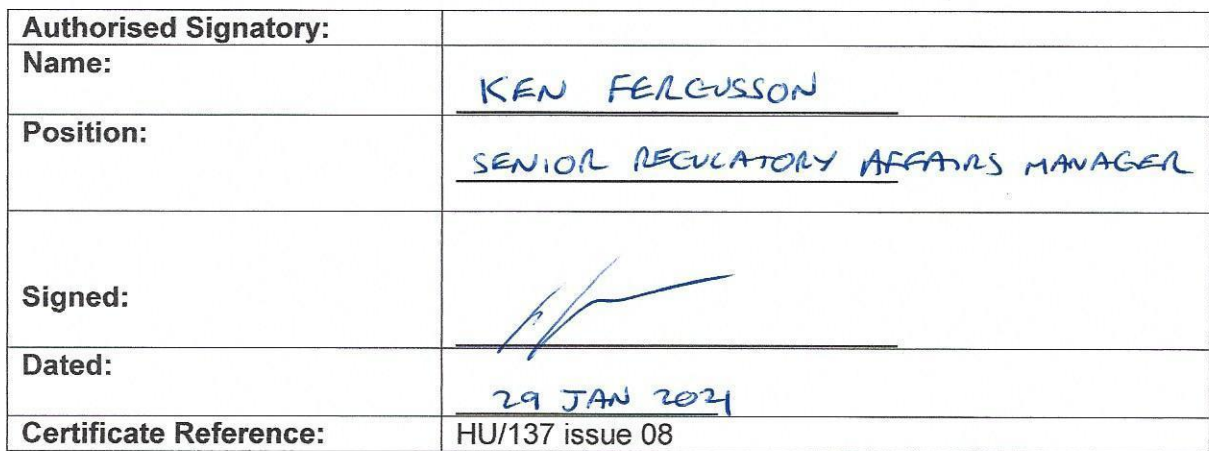 Authorised Signatory:
Name:
KEN FERGUSSON
Position:
SENIOR REGULATORY AFFAIRS MANAGER
Signed:
Dated:
29 JAN 2021
Certificate Reference:
HU/137 issue 08